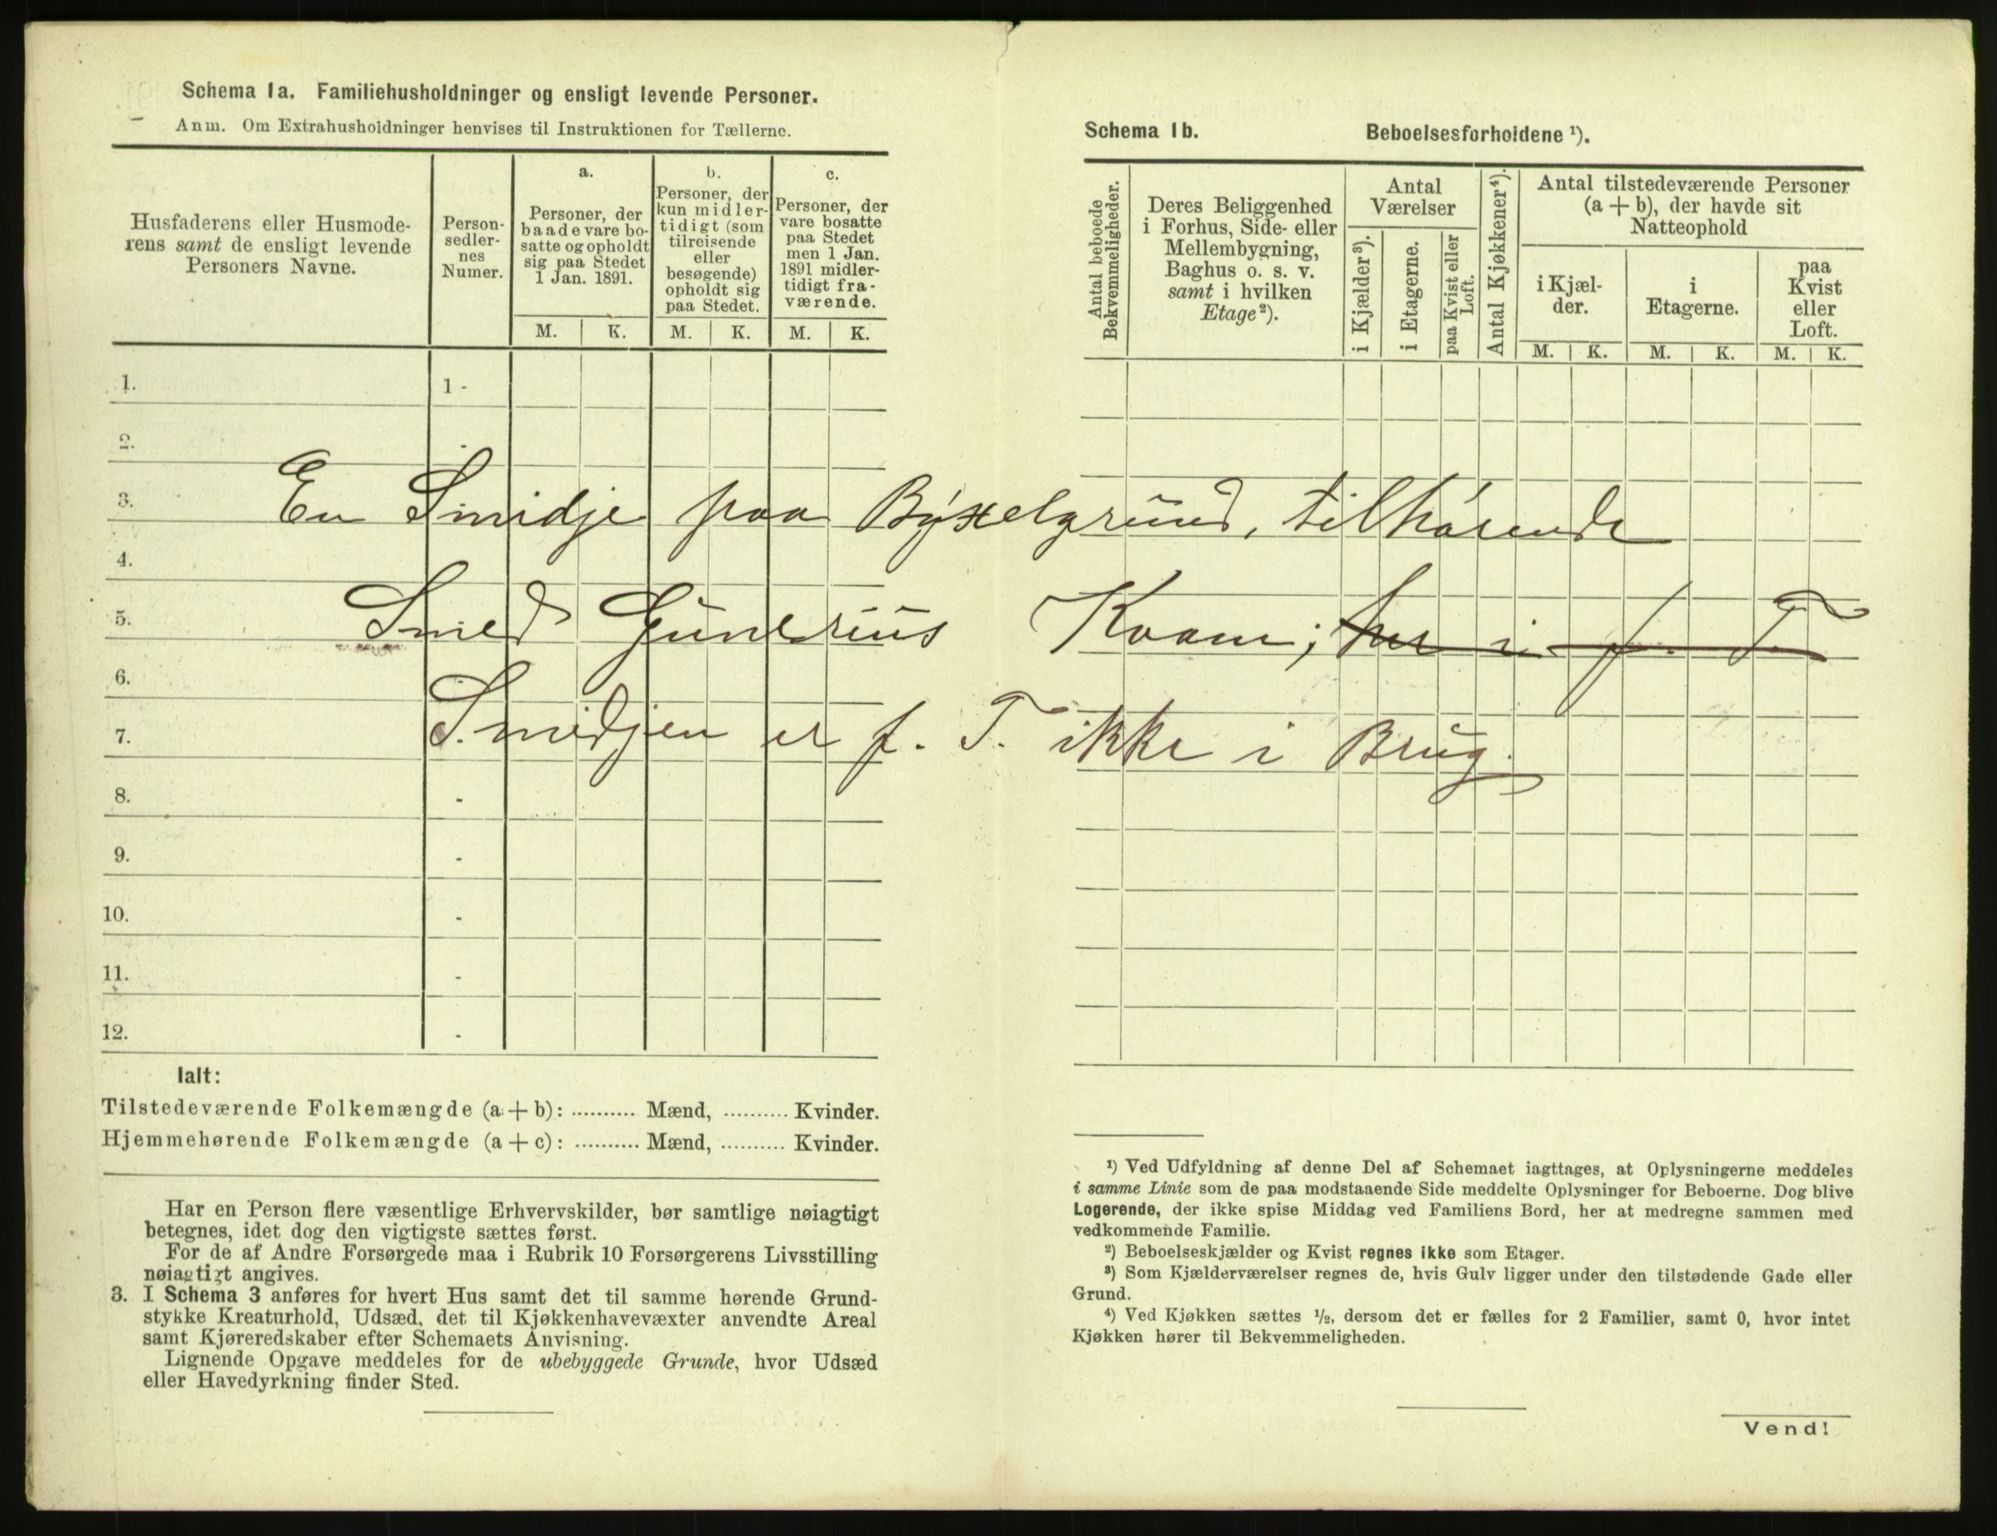 Schema 1a. Familiehusholdninger og ensligt levende Personer.
Anm. Om Extrahusholdninger henvises til Instruktionen for Tællerne.
Husfaderens eller Husmode-
rens samt de ensligt levende
Personers Navne.
Person-
sedler-
nes
Numer.
a.
Personer, der
baade vare bo-
satte og opholdt
sig paa Stedet
1 Jan. 1891.
b.
Personer, der
kun midler-
tidigt (som
tilreisende
eller
besøgende)
opholdt sig
paa Stedet.
c.
Personer, der
vare bosatte
paa Stedet
men 1 Jan.
1891 midler-
tidigt fra-
værende.
M. K. M. K. M. K.
1. 1 -
2. -
3.
4.
5.
6.
7.
8. -
9. -
10. -
11. -
12. -
En Smidje paa Bÿxelgrund, tilhørende
Smed Gunerius Kvam; her i f. T.
Smidjen er f. T. ikke i Brug.
Ialt:
Tilstedeværende Folkemængde (a + b): .......... Mænd, .......... Kvinder.
Hjemmehørende Folkemængde (a + c): .......... Mænd, .......... Kvinder.
Har en Person flere væsentlige Erhvervskilder, bør samtlige nøiagtigt
betegnes, idet dog den vigtigste sættes først.
For de af Andre Forsørgede maa i Rubrik 10 Forsørgerens Livsstilling
nøiagtigt angives.
3. I Schema 3 anføres for hvert Hus samt det til samme hørende Grund-
stykke Kreaturhold, Udsæd, det til Kjøkkenhavevæxter anvendte Areal
samt Kjøreredskaber efter Schemaets Anvisning.
Lignende Opgave meddeles for de ubebyggede Grunde, hvor Udsæd
eller Havedyrkning finder Sted.
Schema 1b. Beboelsesforholdene ¹).
Antal beboede
Bekvemmeligheder.
Deres Beliggenhed
i Forhus, Side- eller
Mellembygning,
Baghus o. s. v.
samt i hvilken
Etage²).
Antal
Værelser
i Kjælder³).
i Etagerne.
paa Kvist eller
Loft.
Antal Kjøkkener⁴).
Antal tilstedeværende Personer
(a + b), der havde sit
Natteophold
i Kjæl-
der.
i
Etagerne.
paa
Kvist
eller
Loft.
M. K. M. K. M. K.
¹) Ved Udfyldning af denne Del af Schemaet iagttages, at Oplysningerne meddeles
i samme Linie som de paa modstaaende Side meddelte Oplysninger for Beboerne. Dog blive
Logerende, der ikke spise Middag ved Familiens Bord, her at medregne sammen med
vedkommende Familie.
²) Beboelseskjælder og Kvist regnes ikke som Etager.
³) Som Kjælderværelser regnes de, hvis Gulv ligger under den tilstødende Gade eller
Grund.
⁴) Ved Kjøkken sættes ½, dersom det er fælles for 2 Familier, samt 0, hvor intet
Kjøkken hører til Bekvemmeligheden.
Vend!